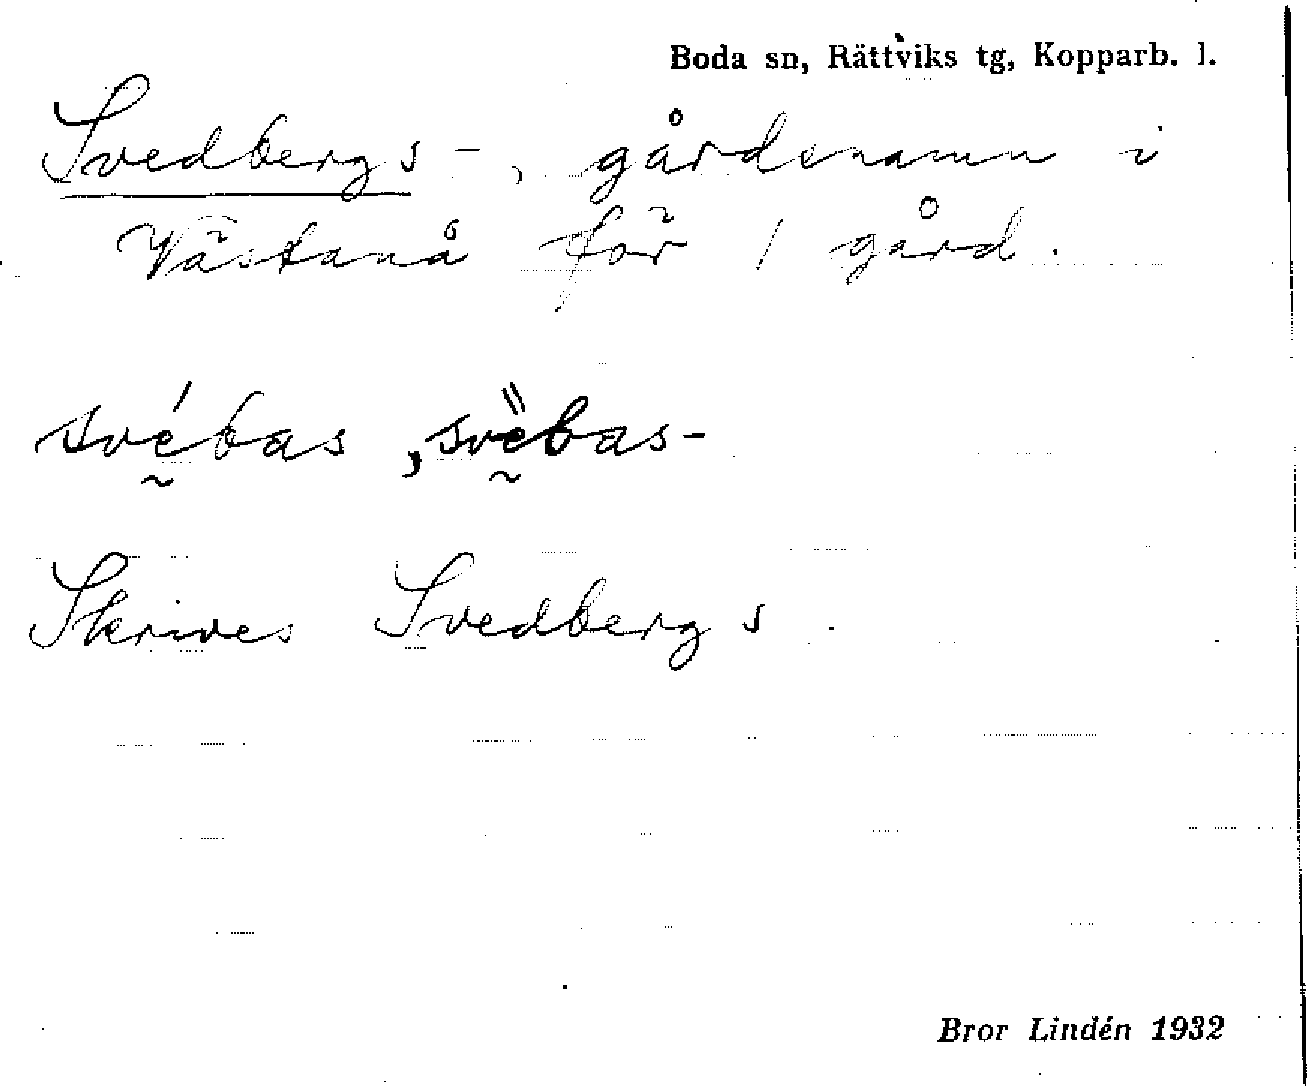 Boda sn, Rättviks tg, Kopparb. l.
Svedbergs-, gårdsnamn i
Västanå för 1 gård.
svḛ́bas, svḛ̈bas-
Skrives Svedbergs.
Bror Lindén 1932